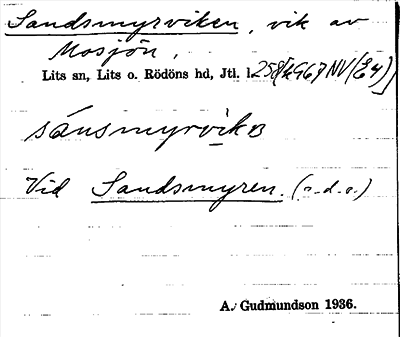 Sandsmyrviken, vik av
Mosjön,
Lits sn, Lits o. Rödöns hd, Jtl.
sánsmyrvìkɐ
Vid Sandsmyren. (s.d.o.)
A. Gudmundson 1936.